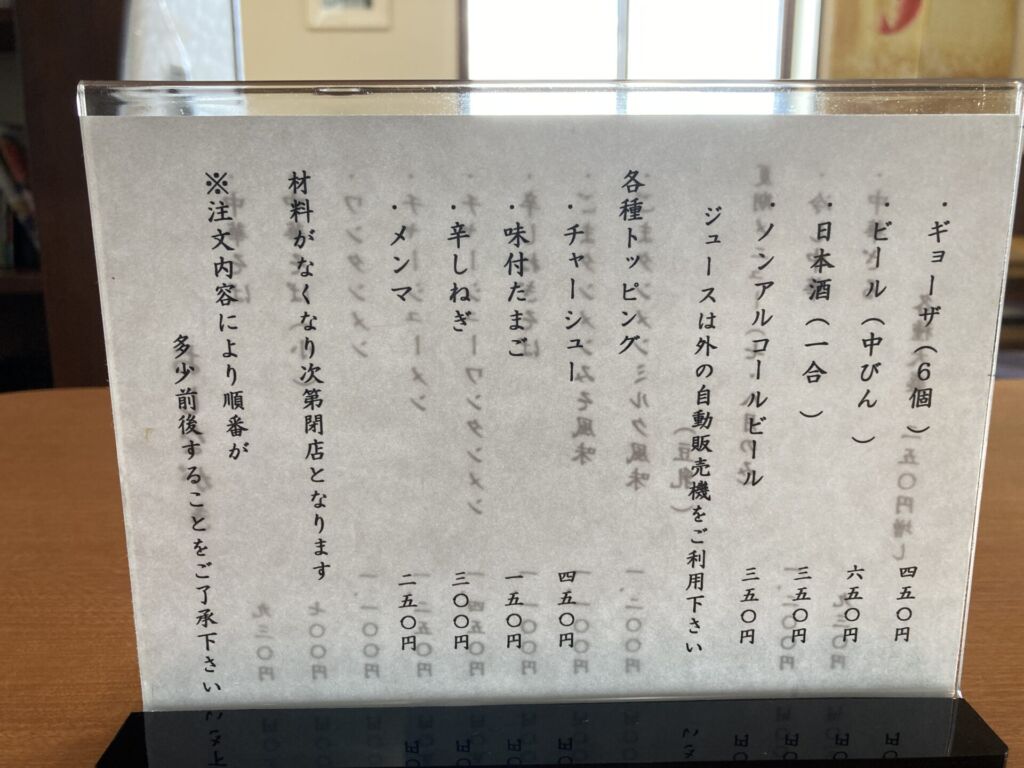 ・ギョーザ（6個） 四五〇円
・ビール（中びん ） 六五〇円
・日本酒（一合 ） 三五〇円
・ノンアルコールビール 三五〇円
ジュースは外の自動販売機をご利用下さい
各種トッピング
・チャーシュー 四五〇円
・味付たまご 一五〇円
・辛しねぎ 三〇〇円
・メンマ 二五〇円
材料がなくなり次第閉店となります
※注文内容により順番が
多少前後することをご了承下さい